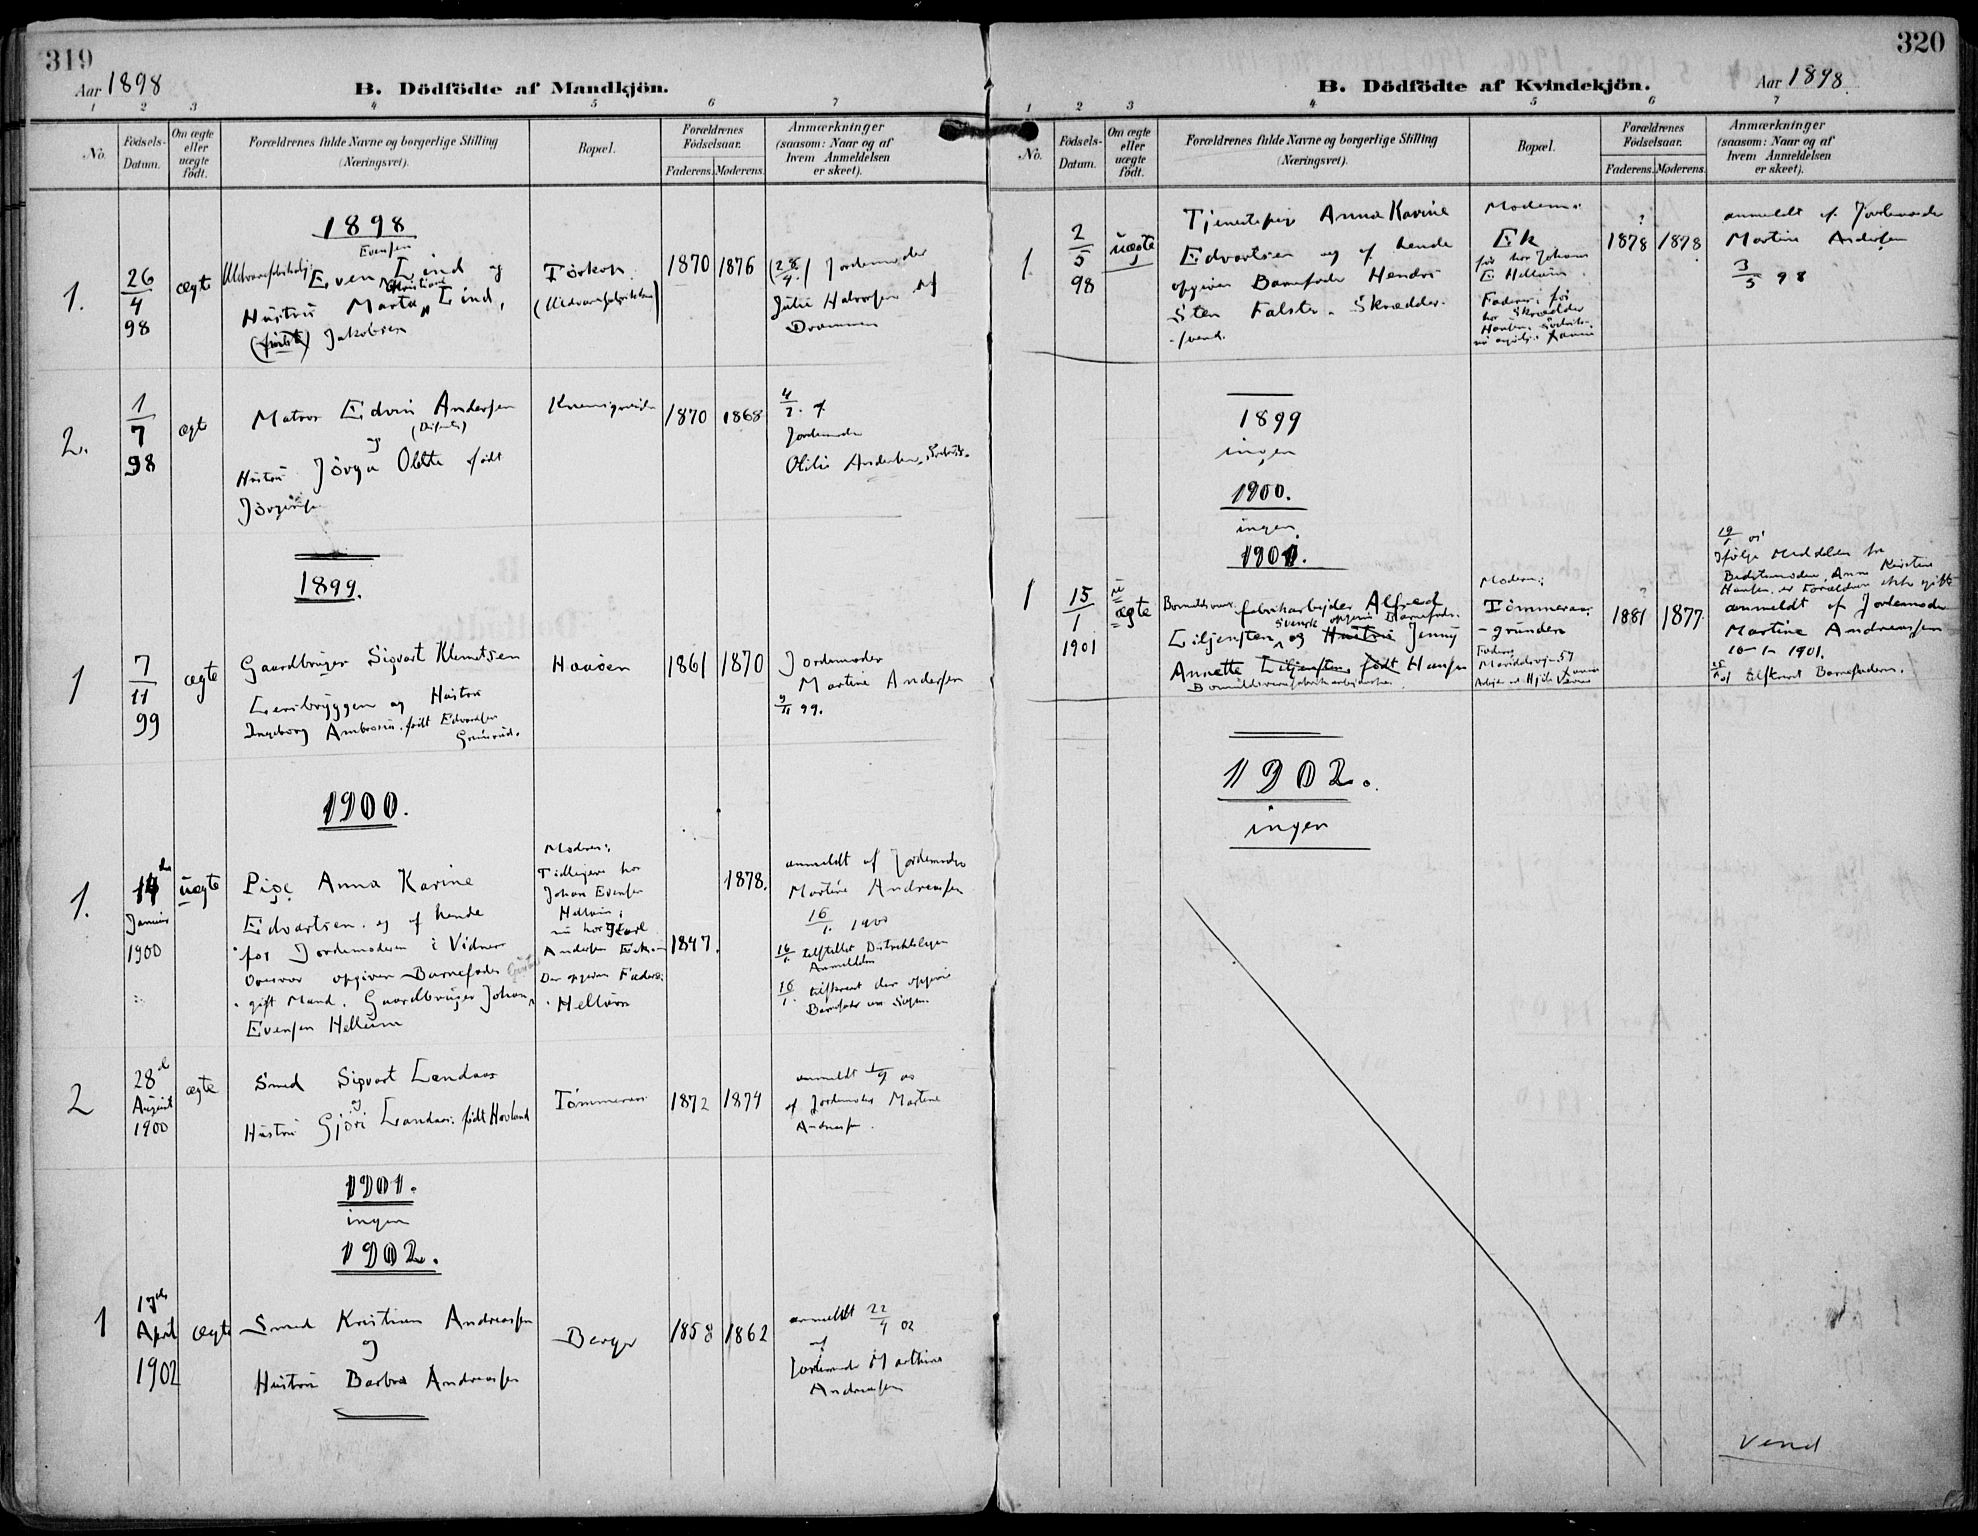 319
Aar 1898
B. Dödfödte af Mandkjön.
1 2 3 4 5 6 7
No.
Födsels-
Datum.
Om ægte
eller
uægte
födt.
Forældrenes fulde Navne og borgerlige Stilling
(Næringsvei).
Bopæl.
Forældrenes
Födselsaar.
Faderens. Moderens.
Anmærkninger
(saasom: Naar og af
hvem Anmeldelsen
er skeet).
1898
1.
26
4
98
ægte
Evensen
Even Lind og
Hustru Marta Lind,
(født) Jakobsen
Tørkop
1870 1876
(28/4) Jordemoder
Julie Halvorsen af
Drammen
2.
1
7
98
ægte
Matros Edvin Andersen
og
Hustru Jørga Olette født
Jørgensen
1870 1868
4/7 af
Jordemoder
Olilie Andersen
1899.
1
7
11
99
ægte
Gaardbruger Sigvart Klemetsen
Leerbryggen og Hustru
Ingeborg Ambrosia født Edvardsen
Haaøen
1861 1870
Jordemoder
Martine Andersen
9/11 99.
1900.
1.
14de
Januar
1900
uægte
Pige Anna Karine
Edvartsen og af hende
for Jordemoderen i Vidners
Overvær opgiven Barnefader
gift Mand. Gaardbruger Johan
Evensen Hellum
Moderen:
Tidligere hos
Johan Evensen
Hellum;
nu hos Karl
Andersen Ek
Den opgivne Faders:
Hellum
1847. 1878.
anmeldt af Jordemoder
Martine Andreassen
16/1. 1900
16/1 tilstillet Distriktslægen
Anmeldelse
16/1. tilskrevet den opgivne
Barnefader om Sagen.
2
28de
August
1900
ægte
Smed Sigvart Landaas
og
Hustru Gjøri Landaas født Hovland
Tømmeraas
1872 1874
anmeldt 1/9 00
af Jordemoder Martine
Andreassen.
1901.
ingen
1902.
1
17de
April
1902
ægte
Smed Kristian Andreassen
og
Hustru Barbra Andreassen
Berger
1858 1862
anmeldt 22/4 02
af
Jordemoder Martine
Andreassen
320
Aar 1898
B. Dödfödte af Kvindekjön.
1 2 3 4 5 6 7
No.
Födsels-
Datum.
Om ægte
eller
uægte
födt.
Forældrenes fulde Navne og borgerlige Stilling
(Næringsvei).
Bopæl.
Forældrenes
Födselsaar.
Faderens. Moderens.
Anmærkninger
(saasom: Naar og af
hvem Anmeldelsen
er skeet).
1.
2
5
98
uægte
Tjenestepige Anna Karine
Edvartsen og af hende
opgiven Barnefader Hendrik
Sten Falster. Skrædder-
svend.
Moderen:
Ek
før hos Johan
E Hellum.
Faderen: før
hos Skrædder
?
1878 1878
anmeldt af Jordemoder
Martine Andersen
3/5 98
1899
ingen
1900.
ingen
1901.
1
15
1
1901
uægte
Fabrikarbeider Alfred
svensk opgiven Barnefader
Liljensten og Hustru Jenny
Annette Liljensten født Hansen
Moderen:
Tømmeraas-
grunden
Faderen
Maridalsvejen 57
1881 1877.
19/1 01
Ifølge Meddelelse fra
Bedstemoderen, Anne Kirstine
Hansen, er Forældrene ikke gifte
anmeldt af Jordemoder
Martine Andreassen
16-1-1901.
tilskrevet Barnefaderen.
1902.
ingen
Vend